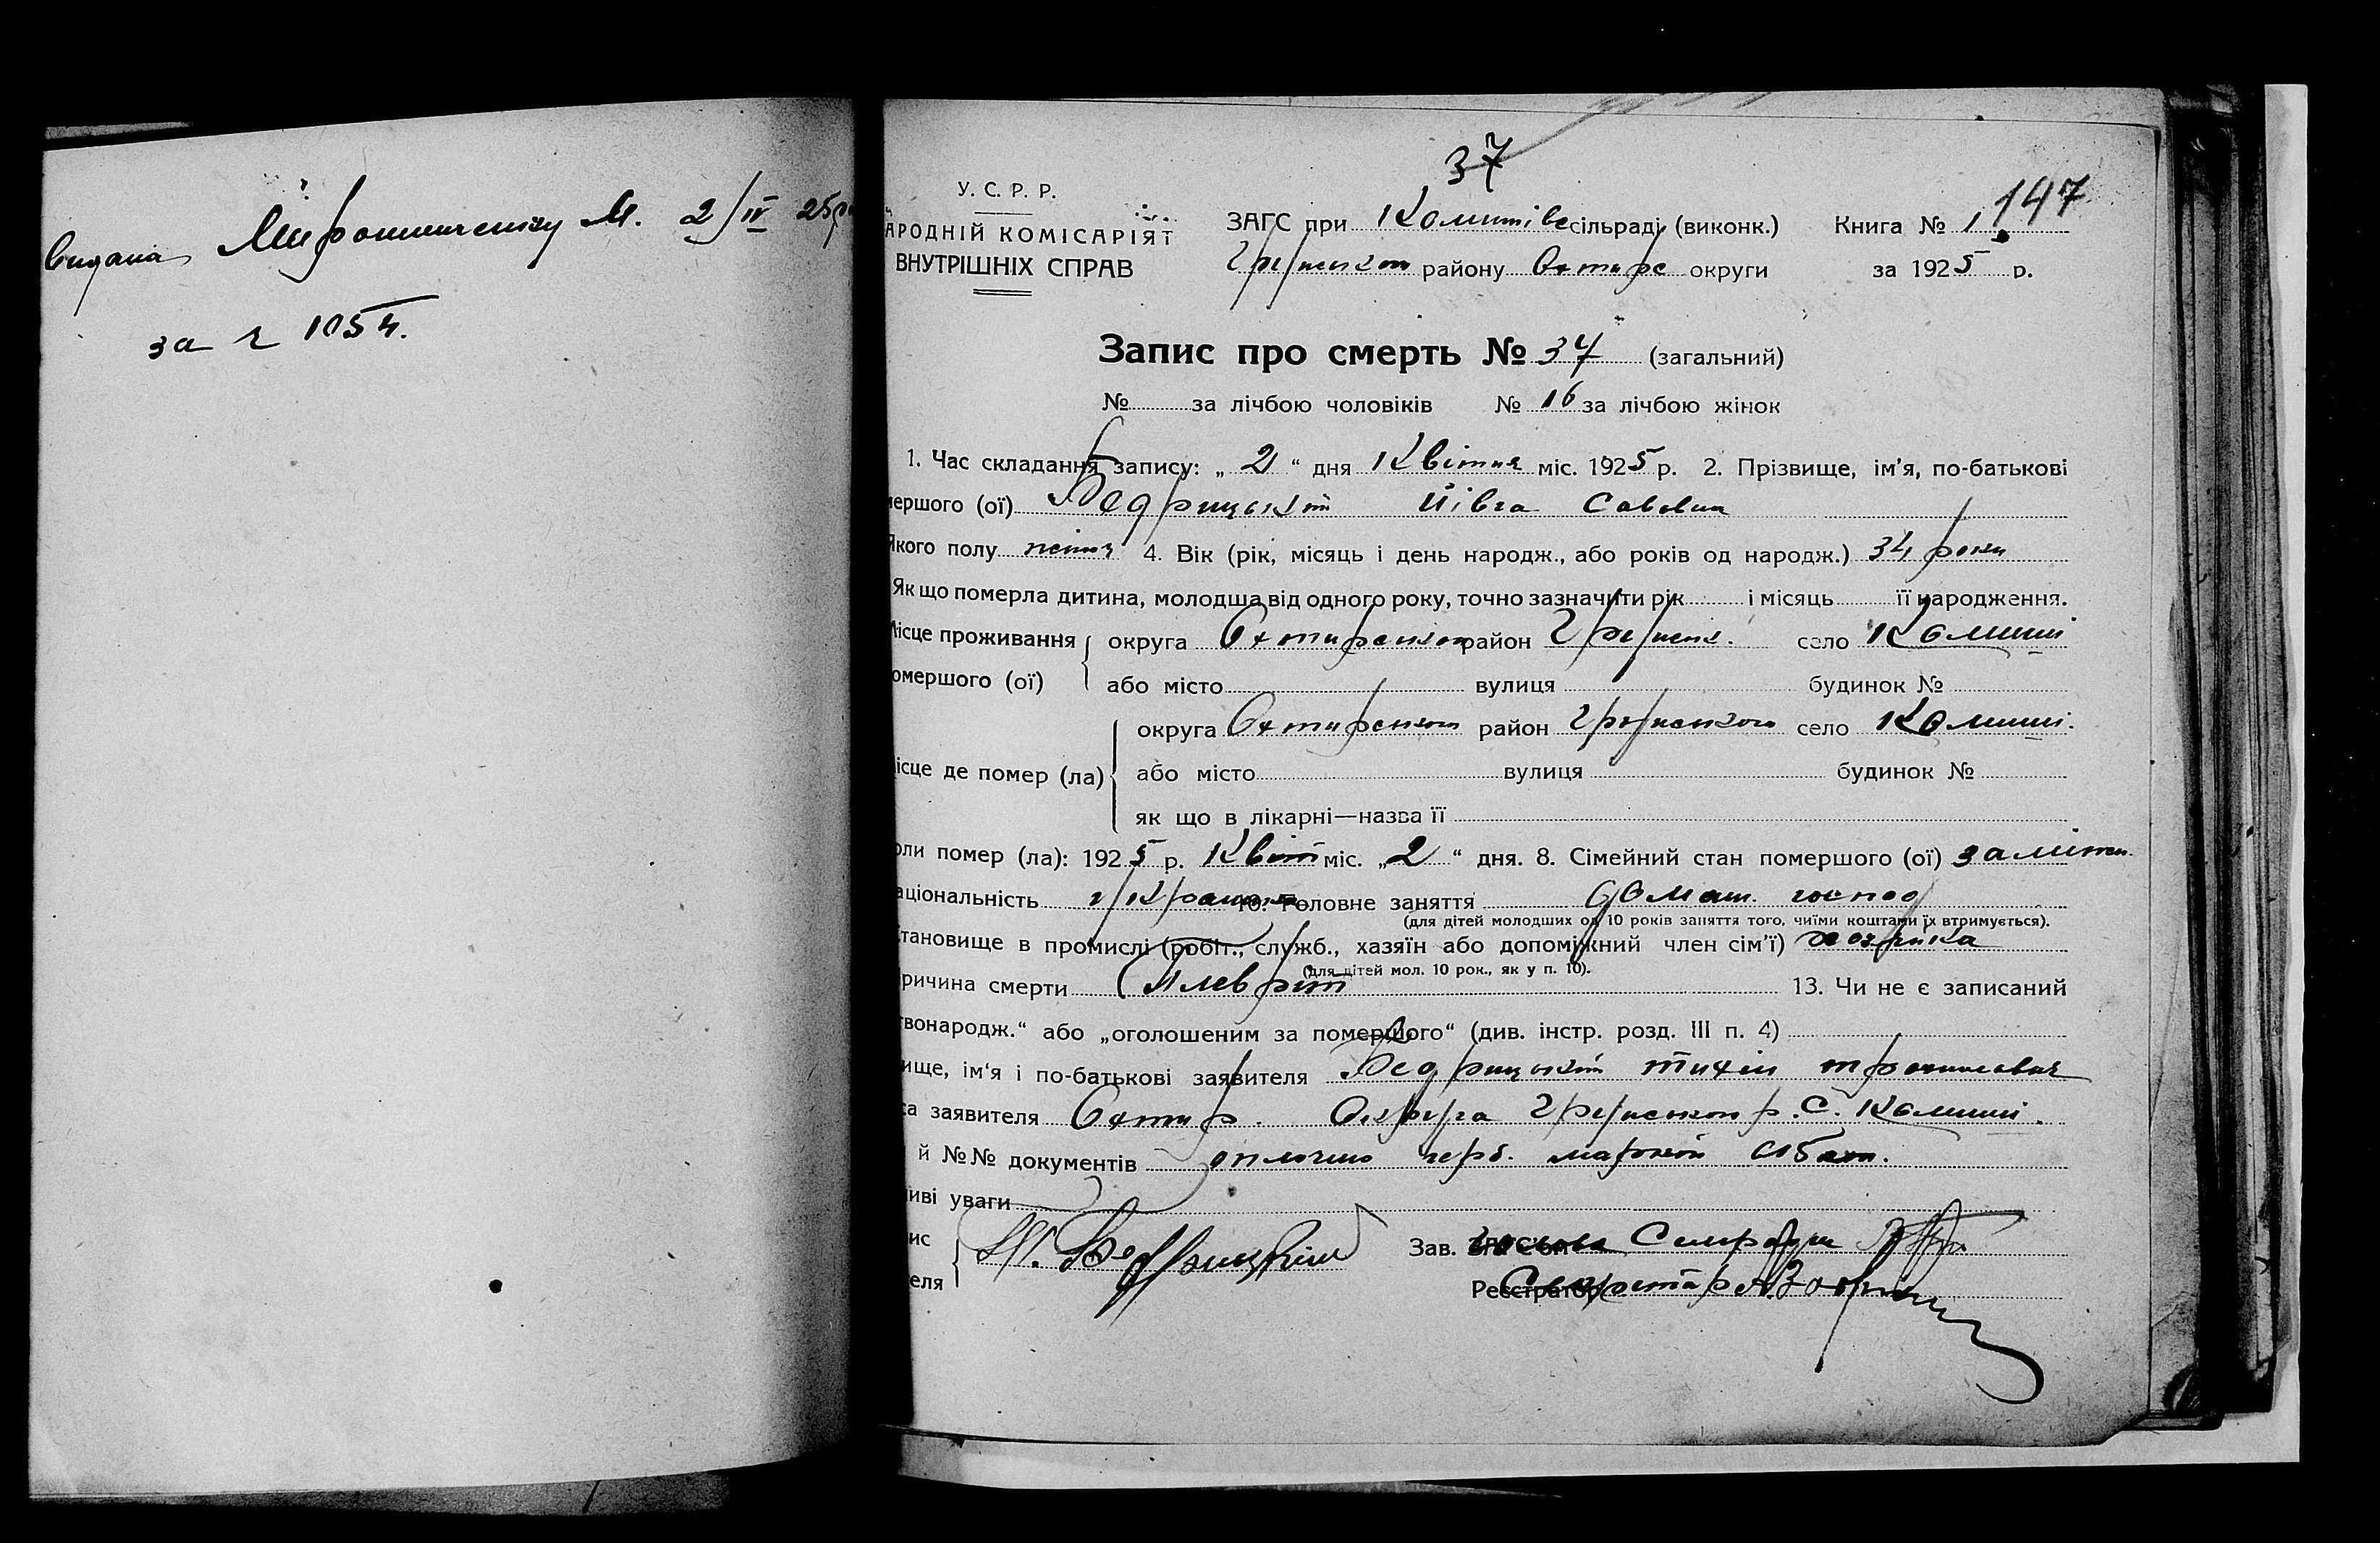 видана Мирошниченку М. 2/IV 25р
за г 1054.
37
У. С. Р. Р.
АРОДНІЙ КОМІСАРІЯТ
ВНУТРІШНІХ СПРАВ
ЗАГС при Комишів сільраді (виконк.) Книга № 1 147
Грунськом району Охтирс округи за 1925 р.
Запис про смерть № 37 (загальний)
№ за лічбою чоловіків № 16 за лічбою жінок
1. Час складання запису: „ 2 “ дня Квітня міс. 1925 р. 2. Прізвище, ім’я, по-батькові
мершого (ої) Бедрицькій Йівга Савовна
Якого полу жіноч 4. Вік (рік, місяць і день народж., або років од народж.) 34 роки
Як що померла дитина, молодша від одного року, точно зазначити рік і місяць її народження.
Місце проживання округа Охтирськом район Грунськ. село Комиші
омершого (ої) або місто вулиця будинок №
округа Охтирськом район Грунського село Комиші.
ісце де помер (ла) або місто вулиця будинок №
як що в лікарні—назва її
оли помер (ла): 1925 р. Квіт міс. „2“ дня. 8. Сімейний стан помершого (ої) заміжн.
аціональність 10. Головне заняття домаш. господ
(для дітей молодших од 10 років заняття того, чиїми коштами їх втримується).
тановище в промислі (робіт., служб., хазяїн або допоміжний член сім’ї) хазяйка
(для дітей мол. 10 рок., як у п. 10).
ричина смерти Плеврит 13. Чи не є записаний
твонародж.“ або „оголошеним за помершого“ (див. інстр. розд. III п. 4)
ище, ім‘я і по-батькові заявителя Бедрицький Тихін Трохимович
са заявителя Охтир. Округа Грунськом р. С. Комиші.
й №№ документів оплочено герб. маркой
иві уваги
ис Т. Бедрицький Зав. ЗАГС’ом Голова Сельради
еля Реєстратор Секретар